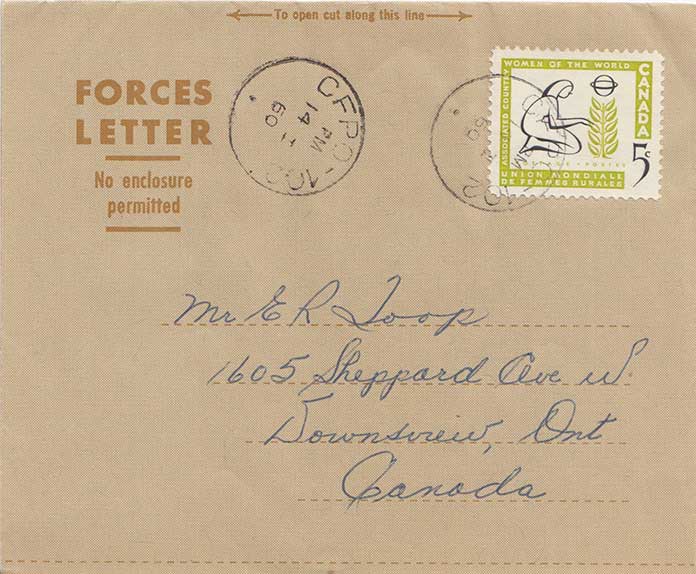 To open cut along this line
FORCES
LETTER
No enclosure
permitted
CFPO - 100
PM
14
II
60
ASSOCIATED COUNTRY WOMEN OF THE WORLD
CANADA
5c
POSTAGE - POSTES
UNION MONDIALE
DE FEMMES RURALES
Mr E R Toop
1605 Sheppard Ave W.
Downsview, Ont
Canada